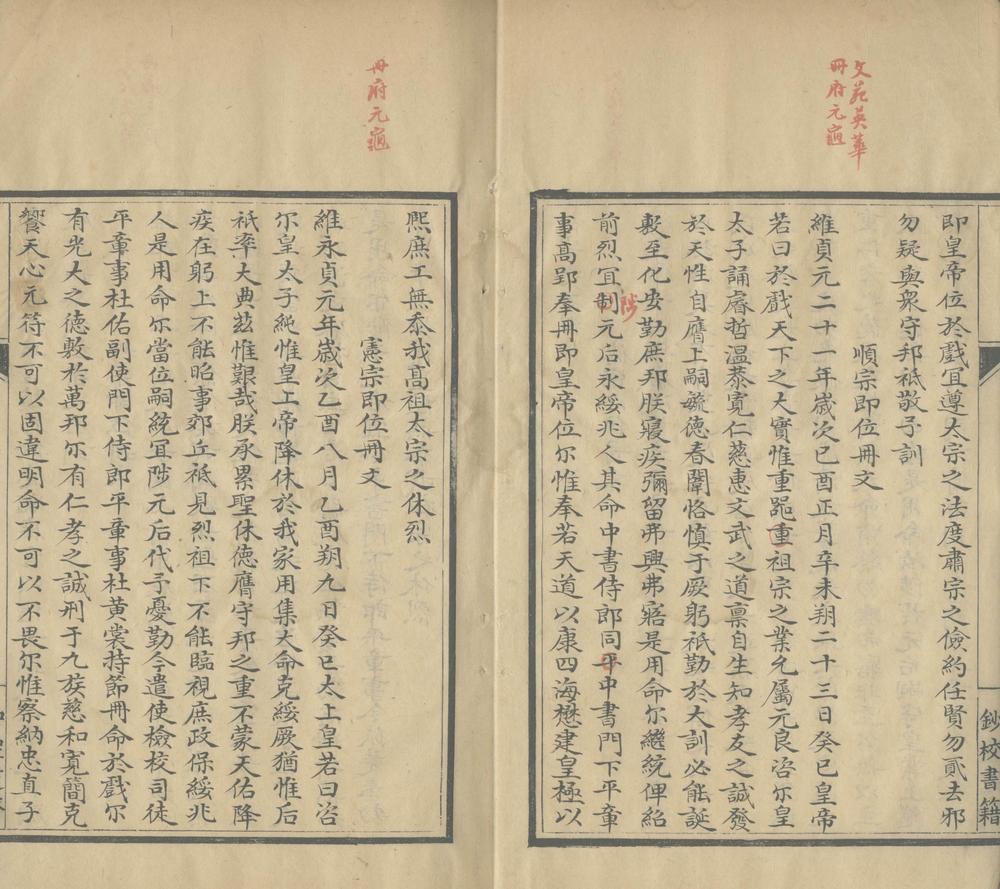 文苑英華
冊府元龜
即皇帝位於戲冝遵太宗之法度肅宗之儉約任賢勿貳去邪
勿疑與衆守邦祗敬予訓
順宗即位冊文
維貞元二十一年歲次已酉正月辛未朔二十三日癸巳皇帝
若曰於戲天下之大實惟重器重祖宗之業允屬元良咨尔皇
太子誦睿哲温恭寛仁慈惠文武之道禀自生知孝友之誠發
於天性自膺上嗣毓德春闈恪慎于厥躬祗勤於大訓必能誕
敷至化安勤庶邦朕寝疾彌留弗興弗寤是用命尔繼統俾紹
前烈冝制元后永綏兆人其命中書侍郎同平中書門下平章
陟
事高郢奉冊即皇帝位尔惟奉若天道以康四海懋建皇極以
鈔校書籍
冊府元龜
熙庶工無忝我高祖太宗之休烈
憲宗即位冊文
維永貞元年歲次乙酉八月乙酉朔九日癸巳太上皇若曰咨
尔皇太子純惟皇上帝降休於我家用集大命克綏厥猶惟后
祇率大典茲惟艱哉朕承累聖休德膺守邦之重不蒙天佑降
疾在躬上不能昭事郊丘祗見烈祖下不能臨視庶政保綏兆
人是用命尔當位嗣統冝陟元后代予憂勤今遣使檢校司徒
平章事杜佑副使門下侍郎平章事杜黄裳持節冊命於戲尔
有光大之德敷於萬邦尔有仁孝之誠刑于九族慈和寛簡克
饗天心元符不可以固違明命不可以不畏尔惟察納忠直子